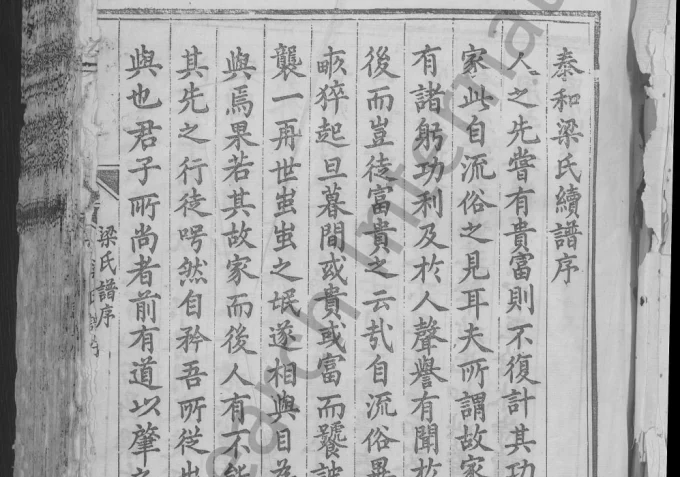 泰和梁氏續譜序
人之先嘗有貴富則不復計其功
家此自流俗之見耳夫所謂故家
有諸躬功利及於人聲譽有聞於
後而豈徒富貴之云㢤自流俗異
畝猝起旦暮間或貴或富而饕詖
襲一再世蚩蚩之氓遂相與目為
與焉果若其故家而後人有不能
其先之行徒咢然自矜吾所從出
與也君子所尚者前有道以肇之
梁氏譜序